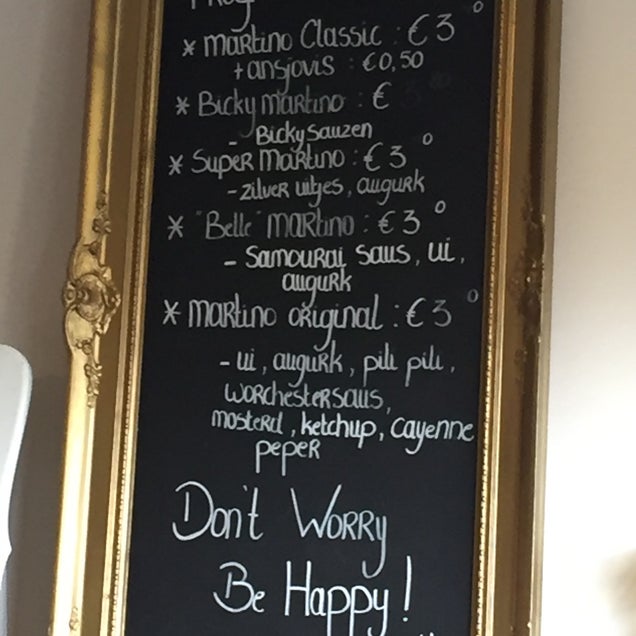 * Martino Classic : € 3°
+ ansjovis : € 0,50
* Bicky martino : €
- Bicky sauzen
* Super Martino : € 3°
- zilver uitjes, augurk
* "Belle" martino : € 3°
- Samourai saus, ui,
augurk
* martino original : € 3°
- ui, augurk, pili pili,
worchestersaus,
mosterd, ketchup, cayenne
peper
Don't Worry
Be Happy!